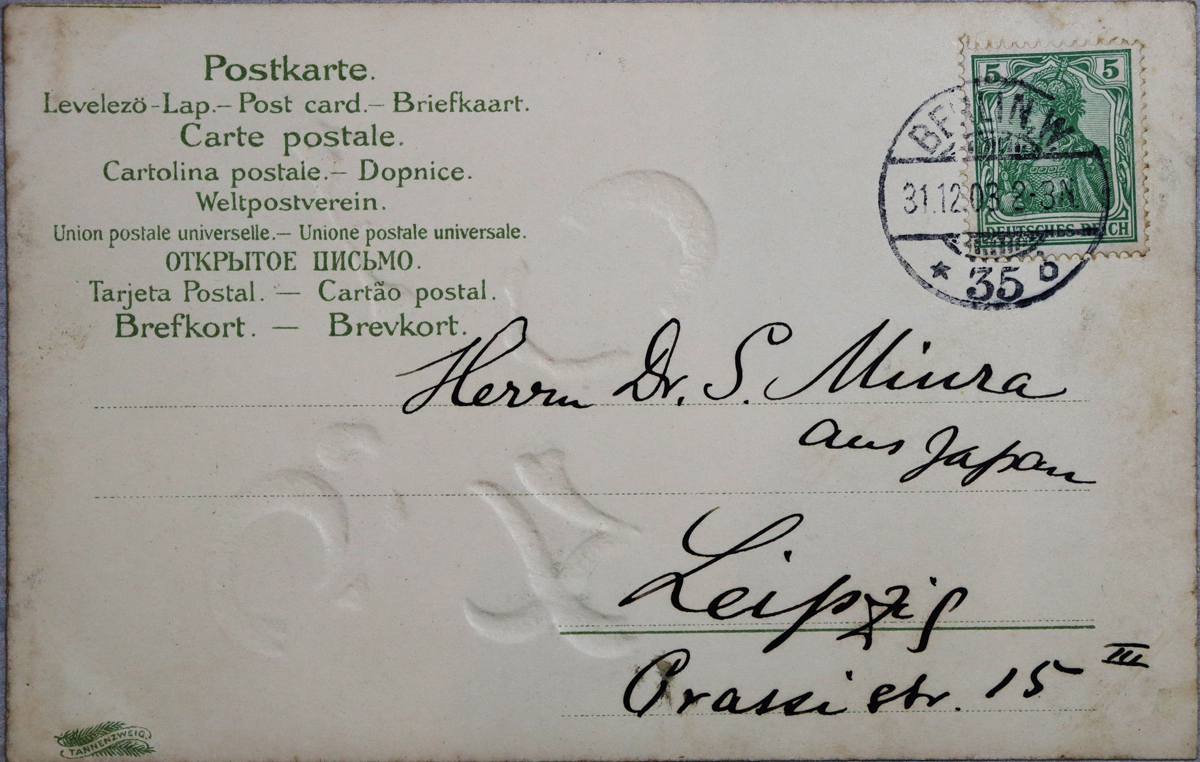 Postkarte.
Levelezö-Lap.– Post card.– Briefkaart.
Carte postale.
Cartolina postale.– Dopnice.
Weltpostverein.
Union postale universelle.– Unione postale universale.
ОТКРЫТОЕ ПИСЬМО.
Tarjeta Postal. — Cartão postal.
Brefkort. — Brevkort.
5 5
DEUTSCHES REICH
BERLIN.W.
31.12.08 2-3N.
* 35 b
Herrn Dr. S. Miura
aus Japan
Leipzig
Grassistr. 15 III
TANNENZWEIG.